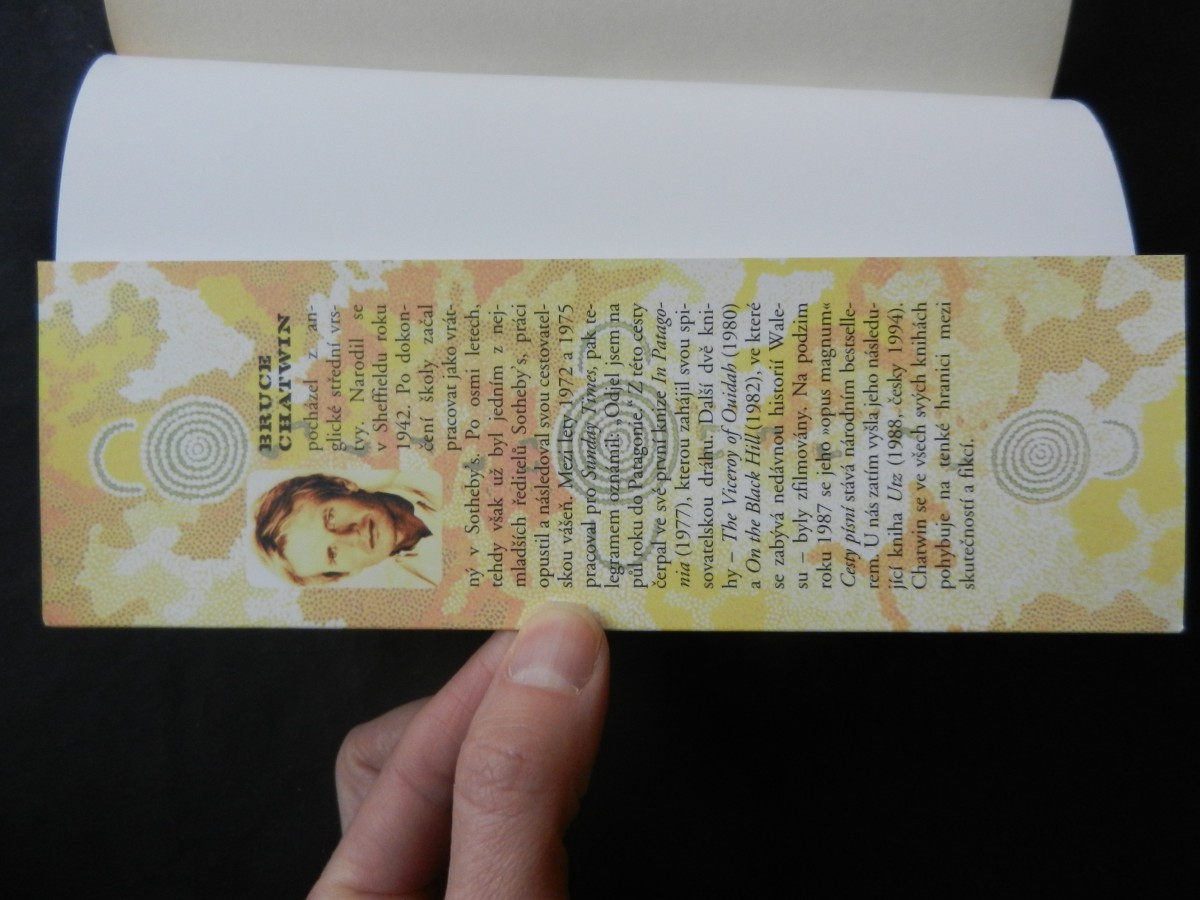 BRUCE
CHATWIN
pocházel z an-
glické střední vrs-
tvy. Narodil se
v Sheffieldu roku
1942. Po dokon-
čení školy začal
pracovat jako vrát-
ný v Sotheby's. Po osmi letech,
tehdy však už byl jedním z nej-
mladších ředitelů Sotheby's, práci
opustil a následoval svou cestovatel-
skou vášeň. Mezi lety 1972 a 1975
pracoval pro Sunday Times, pak te-
legramem oznámil: „Odjel jsem na
půl roku do Patagonie.“ Z této cesty
čerpal ve své první knize In Patago-
nia (1977), kterou zahájil svou spi-
sovatelskou dráhu. Další dvě kni-
hy – The Viceroy of Ouidah (1980)
a On the Black Hill (1982), ve které
se zabývá nedávnou historií Wale-
su – byly zfilmovány. Na podzim
roku 1987 se jeho »opus magnum«
Cesty písní stává národním bestselle-
rem. U nás zatím vyšla jeho následu-
jící kniha Utz (1988, česky 1994).
Chatwin se ve všech svých knihách
pohybuje na tenké hranici mezi
skutečností a fikcí.